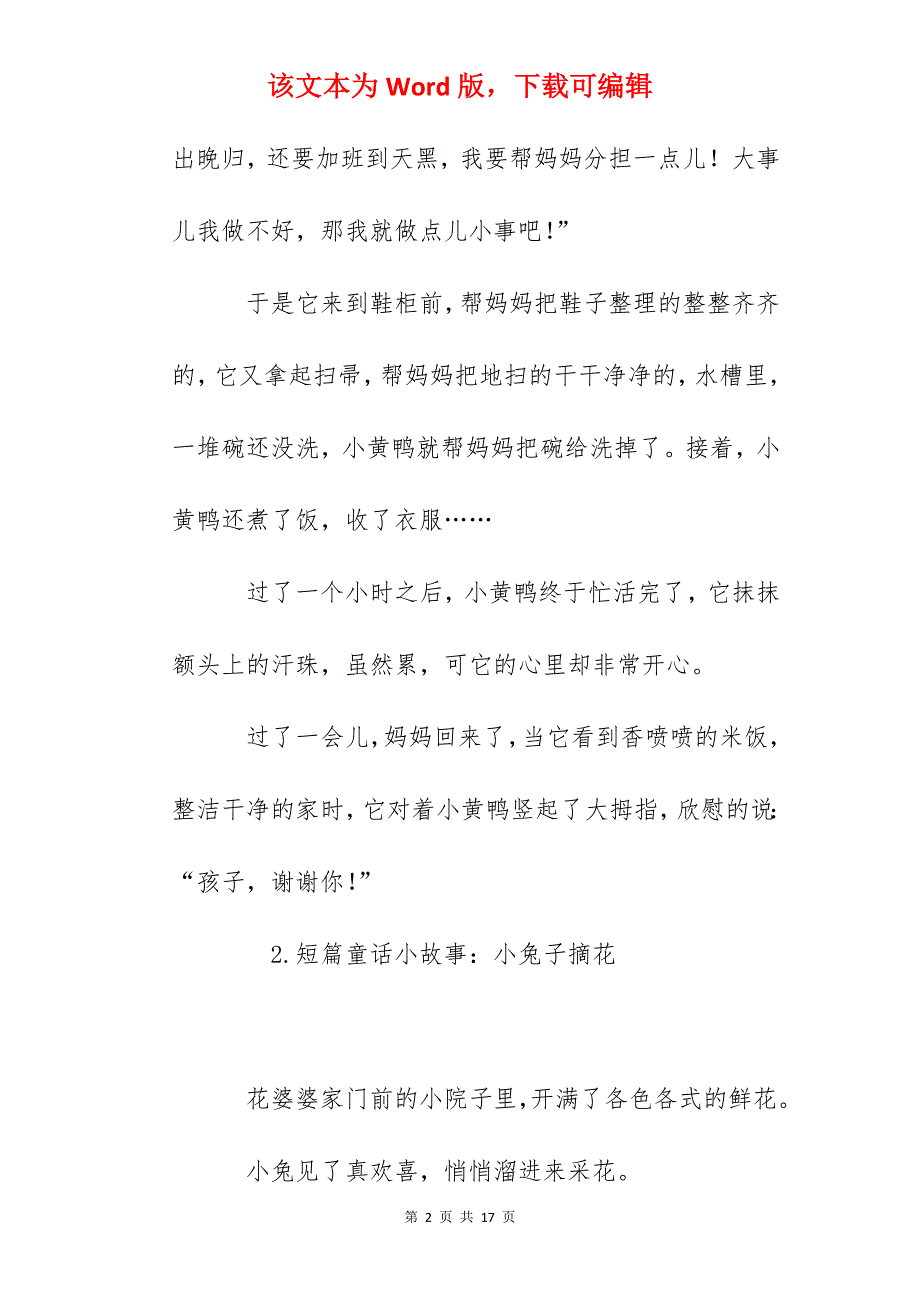 该文本为 Word 版，下载可编辑
出晚归，还要加班到天黑，我要帮妈妈分担一点儿！大事
儿我做不好，那我就做点儿小事吧！”
于是它来到鞋柜前，帮妈妈把鞋子整理的整整齐齐
的，它又拿起扫帚，帮妈妈把地扫的干干净净的，水槽里，
一堆碗还没洗，小黄鸭就帮妈妈把碗给洗掉了。接着，小
黄鸭还煮了饭，收了衣服……
过了一个小时之后，小黄鸭终于忙活完了，它抹抹
额头上的汗珠，虽然累，可它的心里却非常开心。
过了一会儿，妈妈回来了，当它看到香喷喷的米饭，
整洁干净的家时，它对着小黄鸭竖起了大拇指，欣慰的说：
“孩子，谢谢你！”
2.短篇童话小故事：小兔子摘花
花婆婆家门前的小院子里，开满了各色各式的鲜花。
小兔见了真欢喜，悄悄溜进来采花。
第 2 页 共 17 页